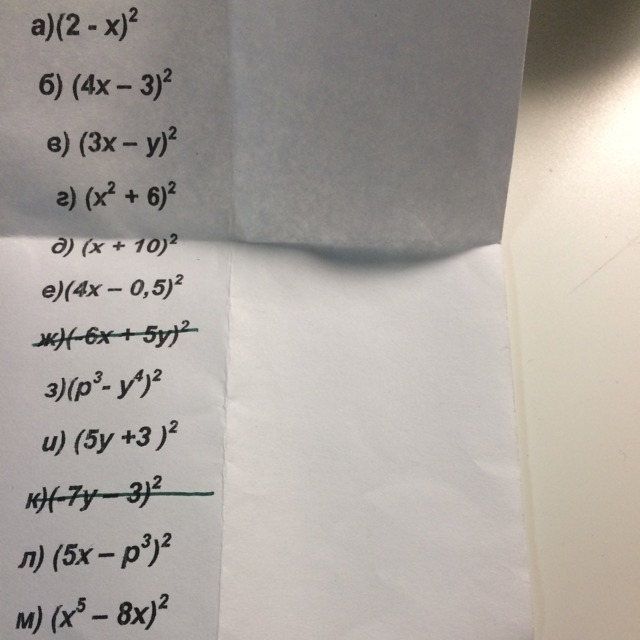 а)(2 - x)²
б) (4x – 3)²
в) (3x – y)²
г) (x² + 6)²
д) (x + 10)²
е)(4x – 0,5)²
ж)(-6x + 5y)²
з)(p³- y⁴)²
и) (5y +3 )²
к)(-7y – 3)²
л) (5x – p³)²
м) (x⁵ – 8x)²